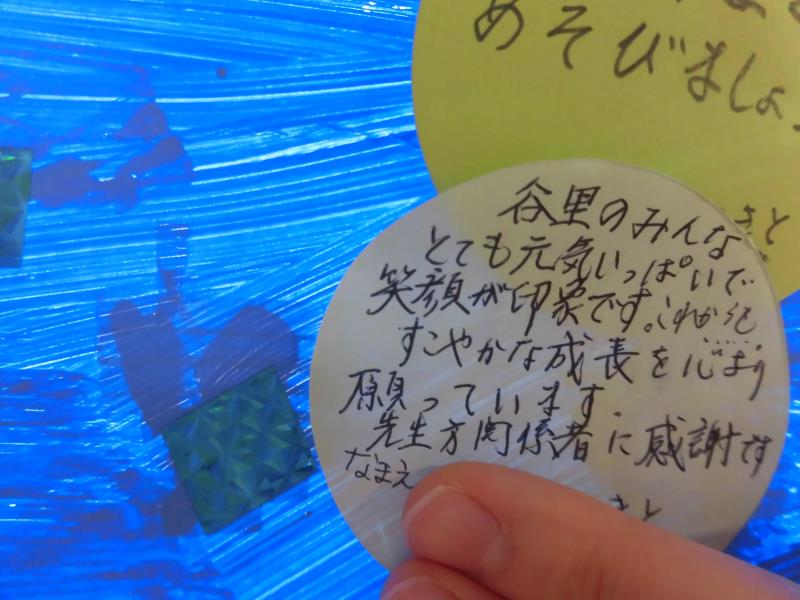 めそびましょ
谷里のみんな
とても元気いっぱいで
笑顔が印象です。これからも
すこやかな成長を心より
願っています.
先生方関係者に感謝です
なまえ
さと
さと